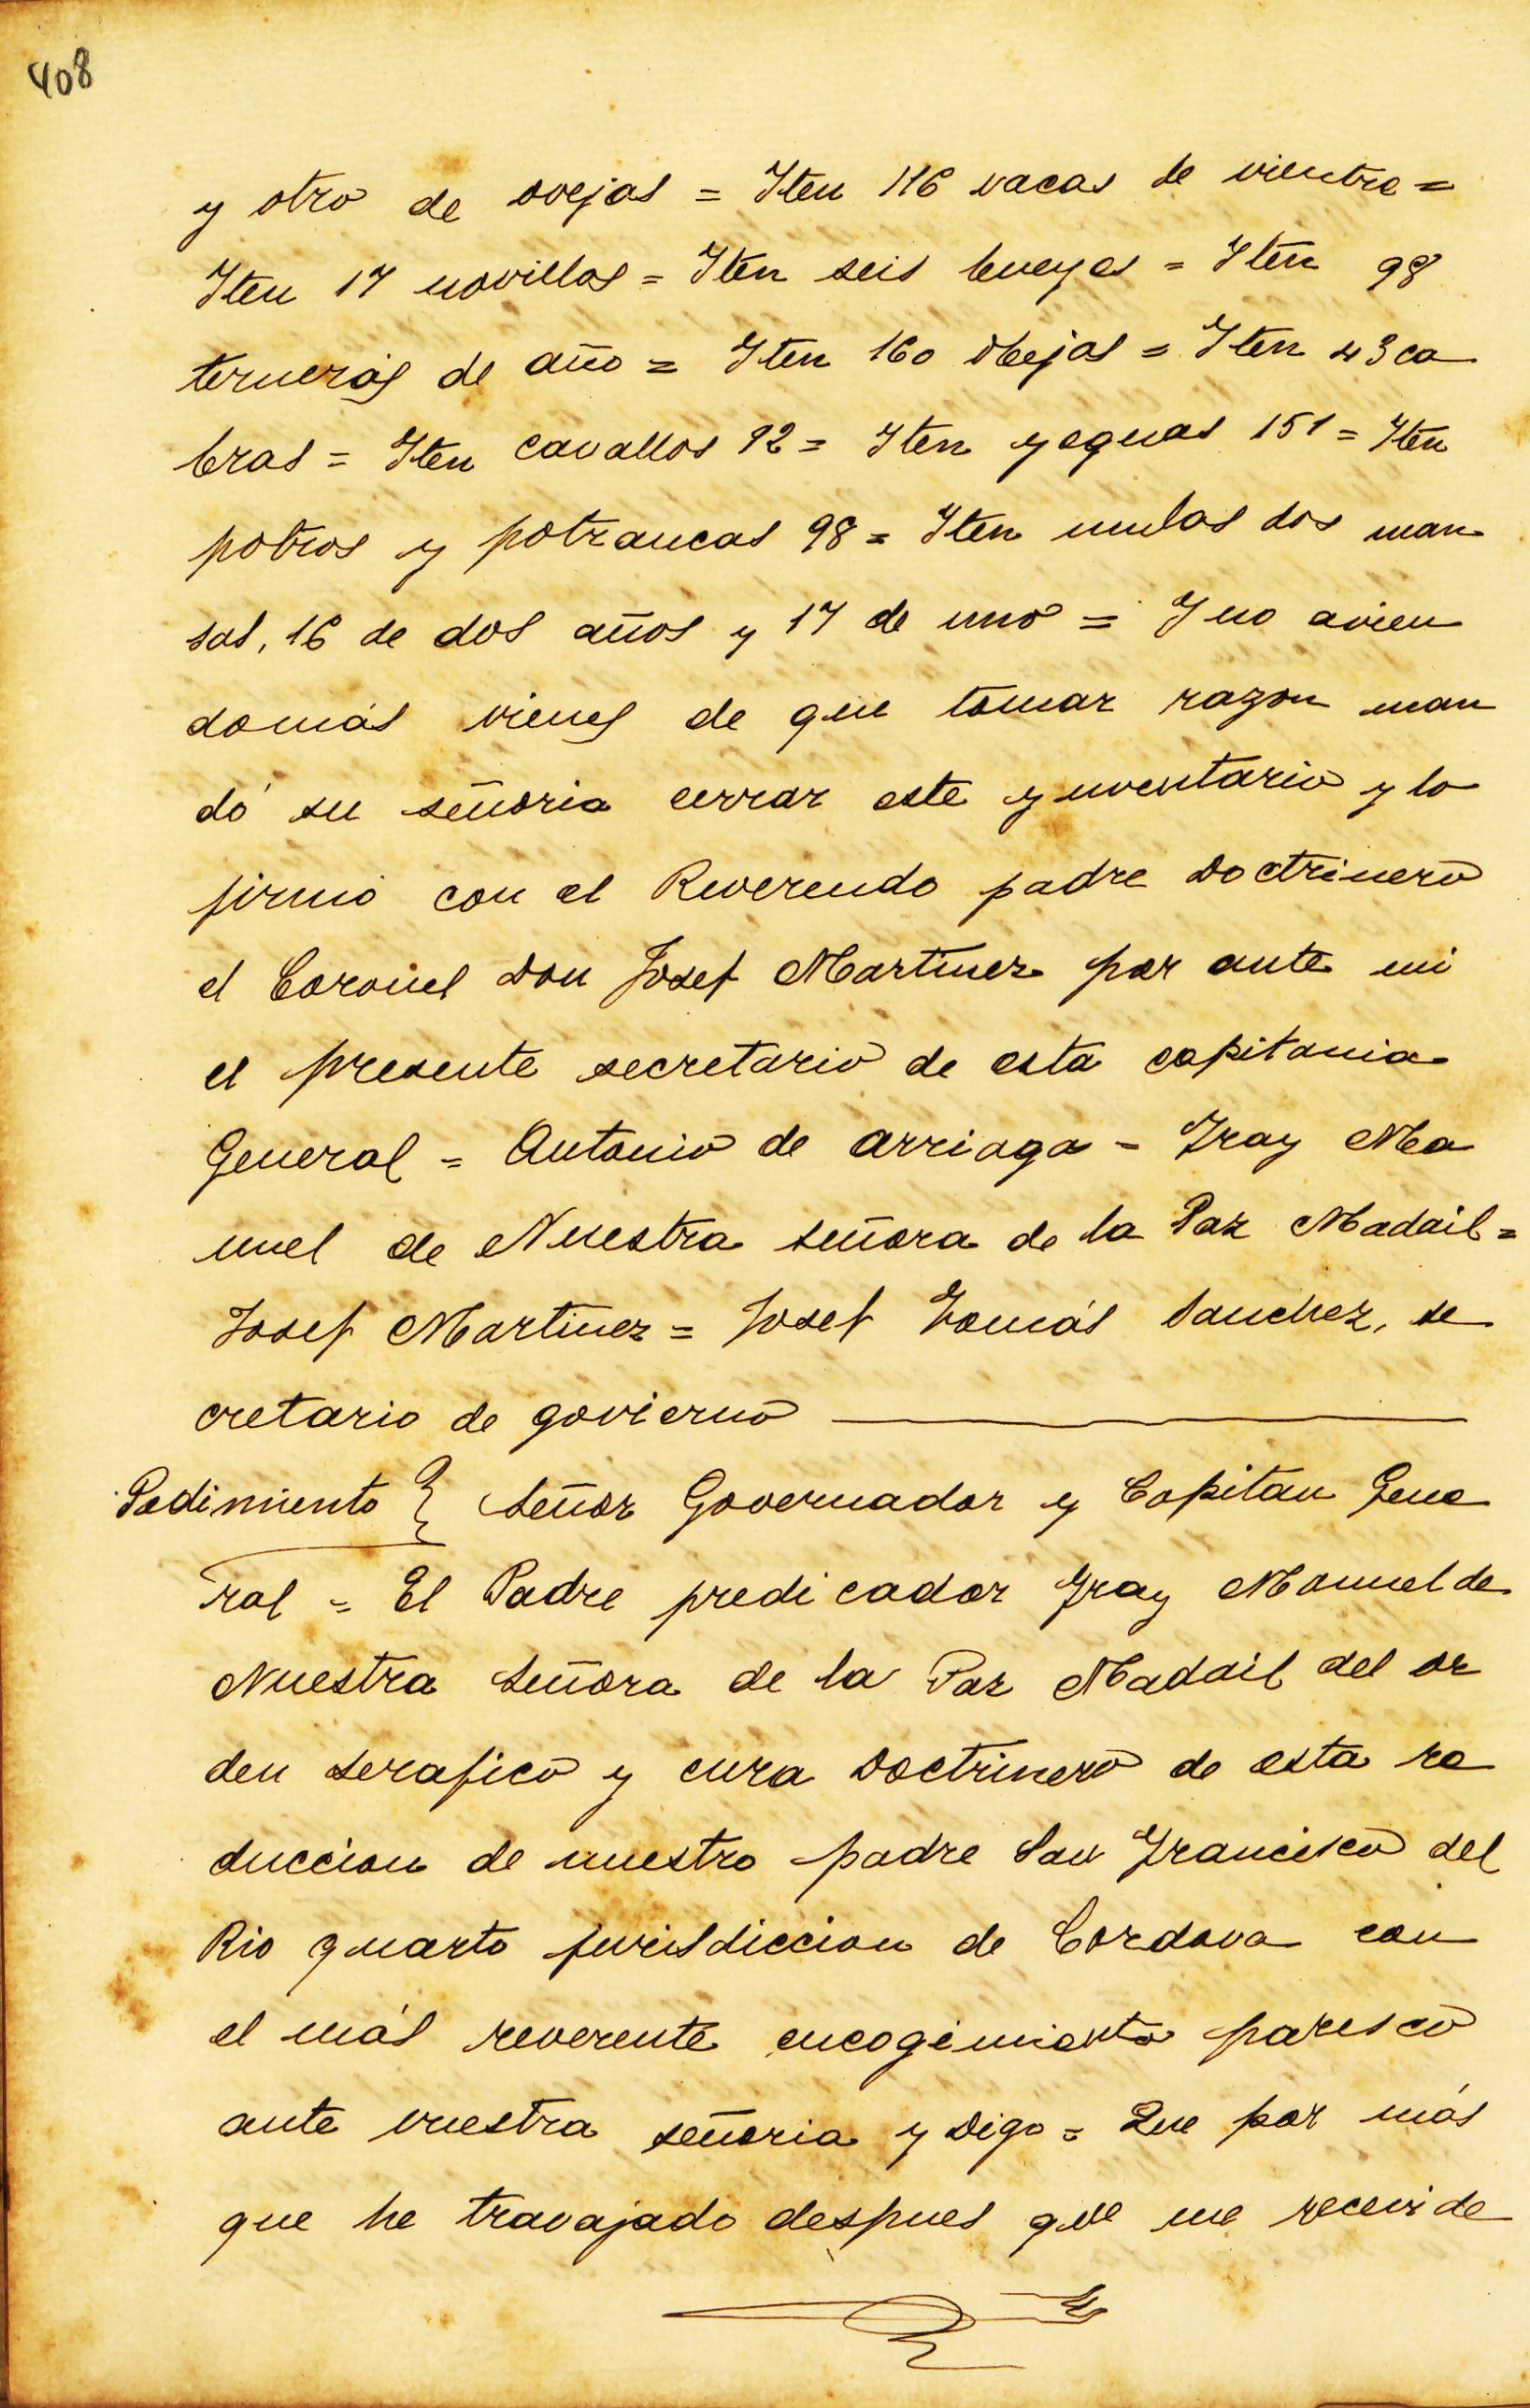 408
y otro de ovejas = Iten 116 vacas de vientre =
Iten 17 novillos = Iten seis bueyes = Iten 98
terneras de año = Iten 160 obejas = Iten 43 ca
bras = Iten cavallos 92 = Iten yeguas 151 = Iten
potros y potrancas 98 = Iten mulas dos man
sas, 16 de dos años y 17 de uno = Y no avien
do más vienes de que tomar razon man
dó su señoria cerrar este ynventario y lo
firmó con el Reverendo padre Doctrinero
el Coronel Don Josef Martinez por ante mi
el presente secretario de esta capitania
General = Antonio de Arriaga = Fray Ma
nuel de Nuestra señora de la Paz Madail =
Josef Martinez = Josef Tomás Sanchez, se
cretario de govierno
Pedimiento } Señor Governador y Capitan Gene
ral = El Padre predicador Fray Manuel de
Nuestra Señora de la Paz Madail del or
den serafico y cura Doctrinero de esta re
duccion de nuestro padre San Francisco del
Rio quarto jurisdiccion de Cordova con
el más reverente encogimiento paresco
ante vuestra señoria y Digo = Que por más
que he travajado despues que me recevi de